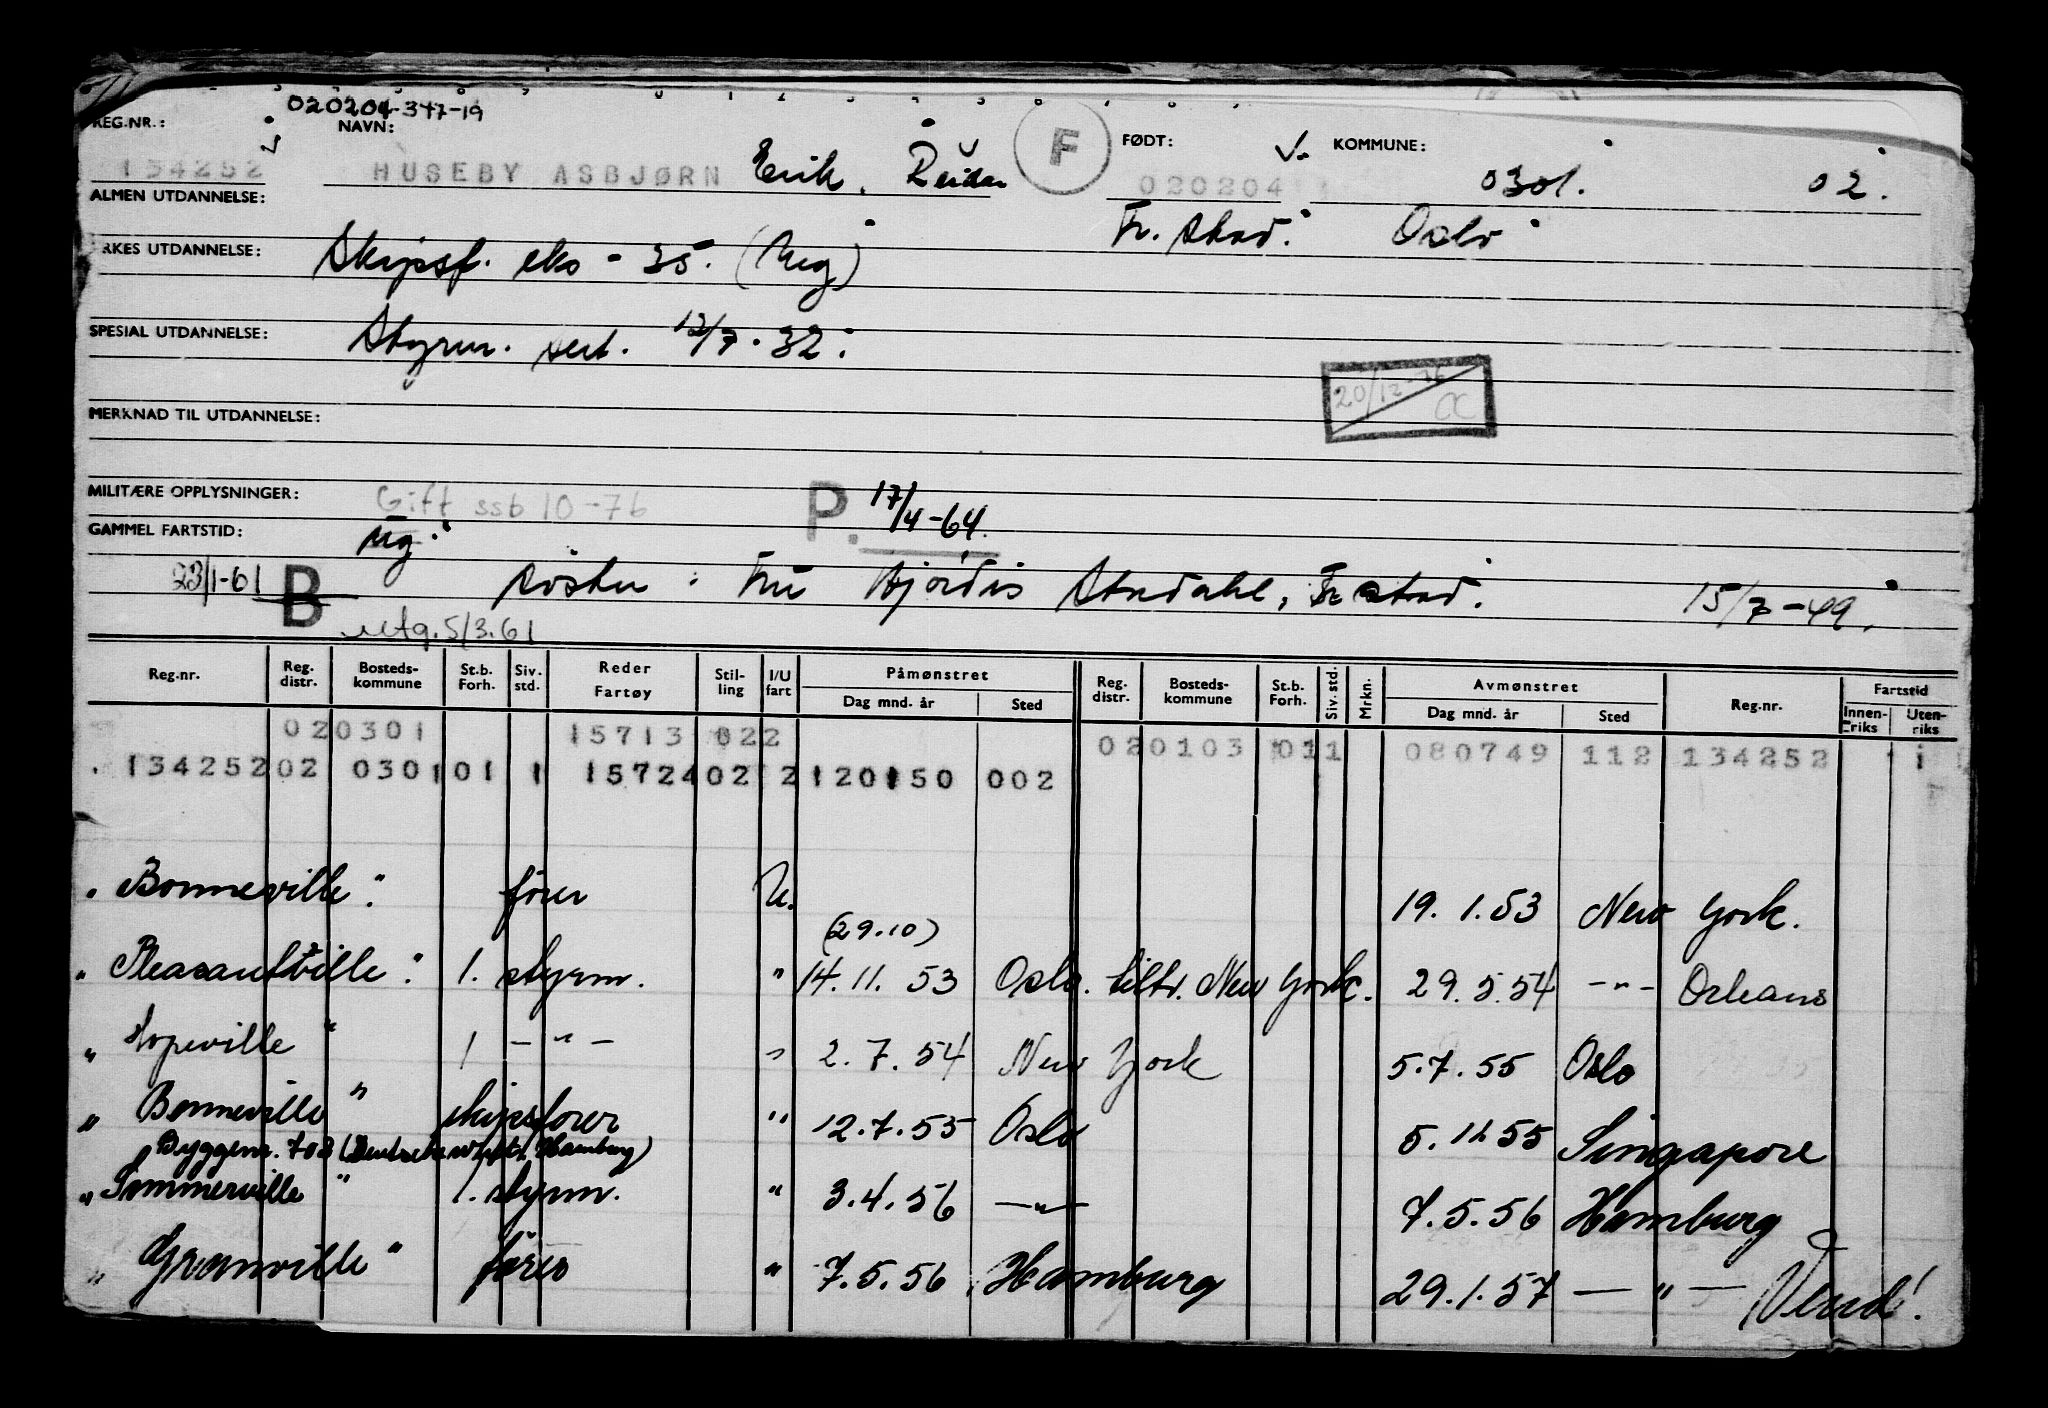 020204-347-19
REG.NR.: NAVN: F FØDT: KOMMUNE:
134252 HUSEBY ASBJØRN Erik, Reidar 020204 0301. 02.
ALMEN UTDANNELSE: Fr.stad. Oslo
YRKES UTDANNELSE: Skipsf. eks - 35. (Utg)
SPESIAL UTDANNELSE: Styrm. sert. 12/7-32.
20/12-76
MERKNAD TIL UTDANNELSE:
MILITÆRE OPPLYSNINGER: Gift ssb 10-76 P. 17/4-64.
GAMMEL FARTSTID: Utg.
23/1-61 B søster: Fru Hjørdis Stadahl, Fr.stad. 15/7-49.
utg. 5/3.61
Reg.nr. Reg. distr. Bosteds-kommune St.b. Forh. Siv. std. Reder Fartøy Stil-ling I/U fart Påmønstret Dag mnd. år Sted Reg. distr. Bosteds-kommune St.b. Forh. Siv. std. Mrkn. Avmønstret Dag mnd. år Sted Reg.nr. Fartstid Innen-riks Uten-riks
020301 15713 022 020103 011 080749 112 134252 1
134252 02 0301 01 1 15724 02 2 120150 002
"Bonneville" fører U. 19.1.53 New York.
(29.10)
"Pleasantville" 1. styrm. " 14.11.53 Oslo. tiltr. New York. 29.5.54 -"- Orleans
"Hopeville" 1 -"- " 2.7.54 New York 5.7.55 Oslo
"Bonneville" skipsfører " 12.7.55 Oslo 5.12.55 Singapore
Byggenr. 703 (Deutsche Werft, Hamburg)
"Sommerville" 1. styrm. " 3.4.56 -"- 7.5.56 Hamburg
"Granville" fører " 7.5.56 Hamburg 29.1.57 -"- Vend!